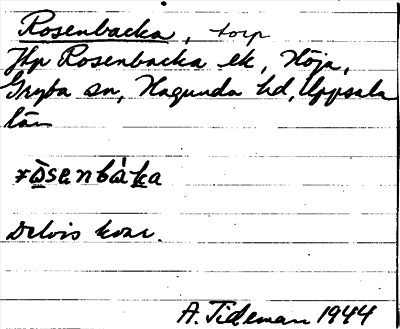 Rosenbacka, torp
Jfr Rosenbacka ek, Höja,
Gryta sn, Hagunda hd, Uppsala
län
Delvis kvar.
A. Tideman 1944